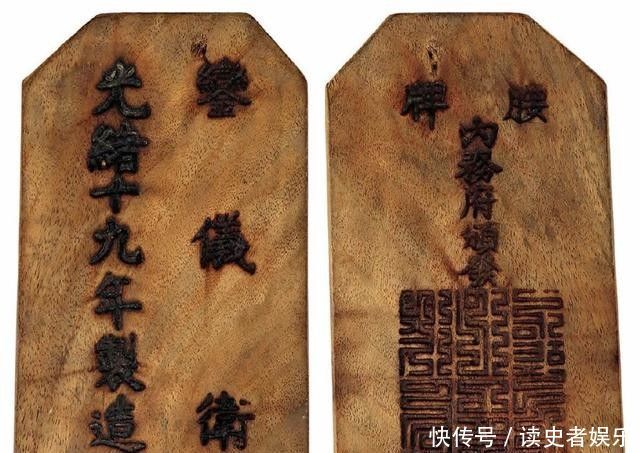 鑾儀衛
光緒十九年製造
腰牌
内務府頒發
快传号 / 读史者娱乐